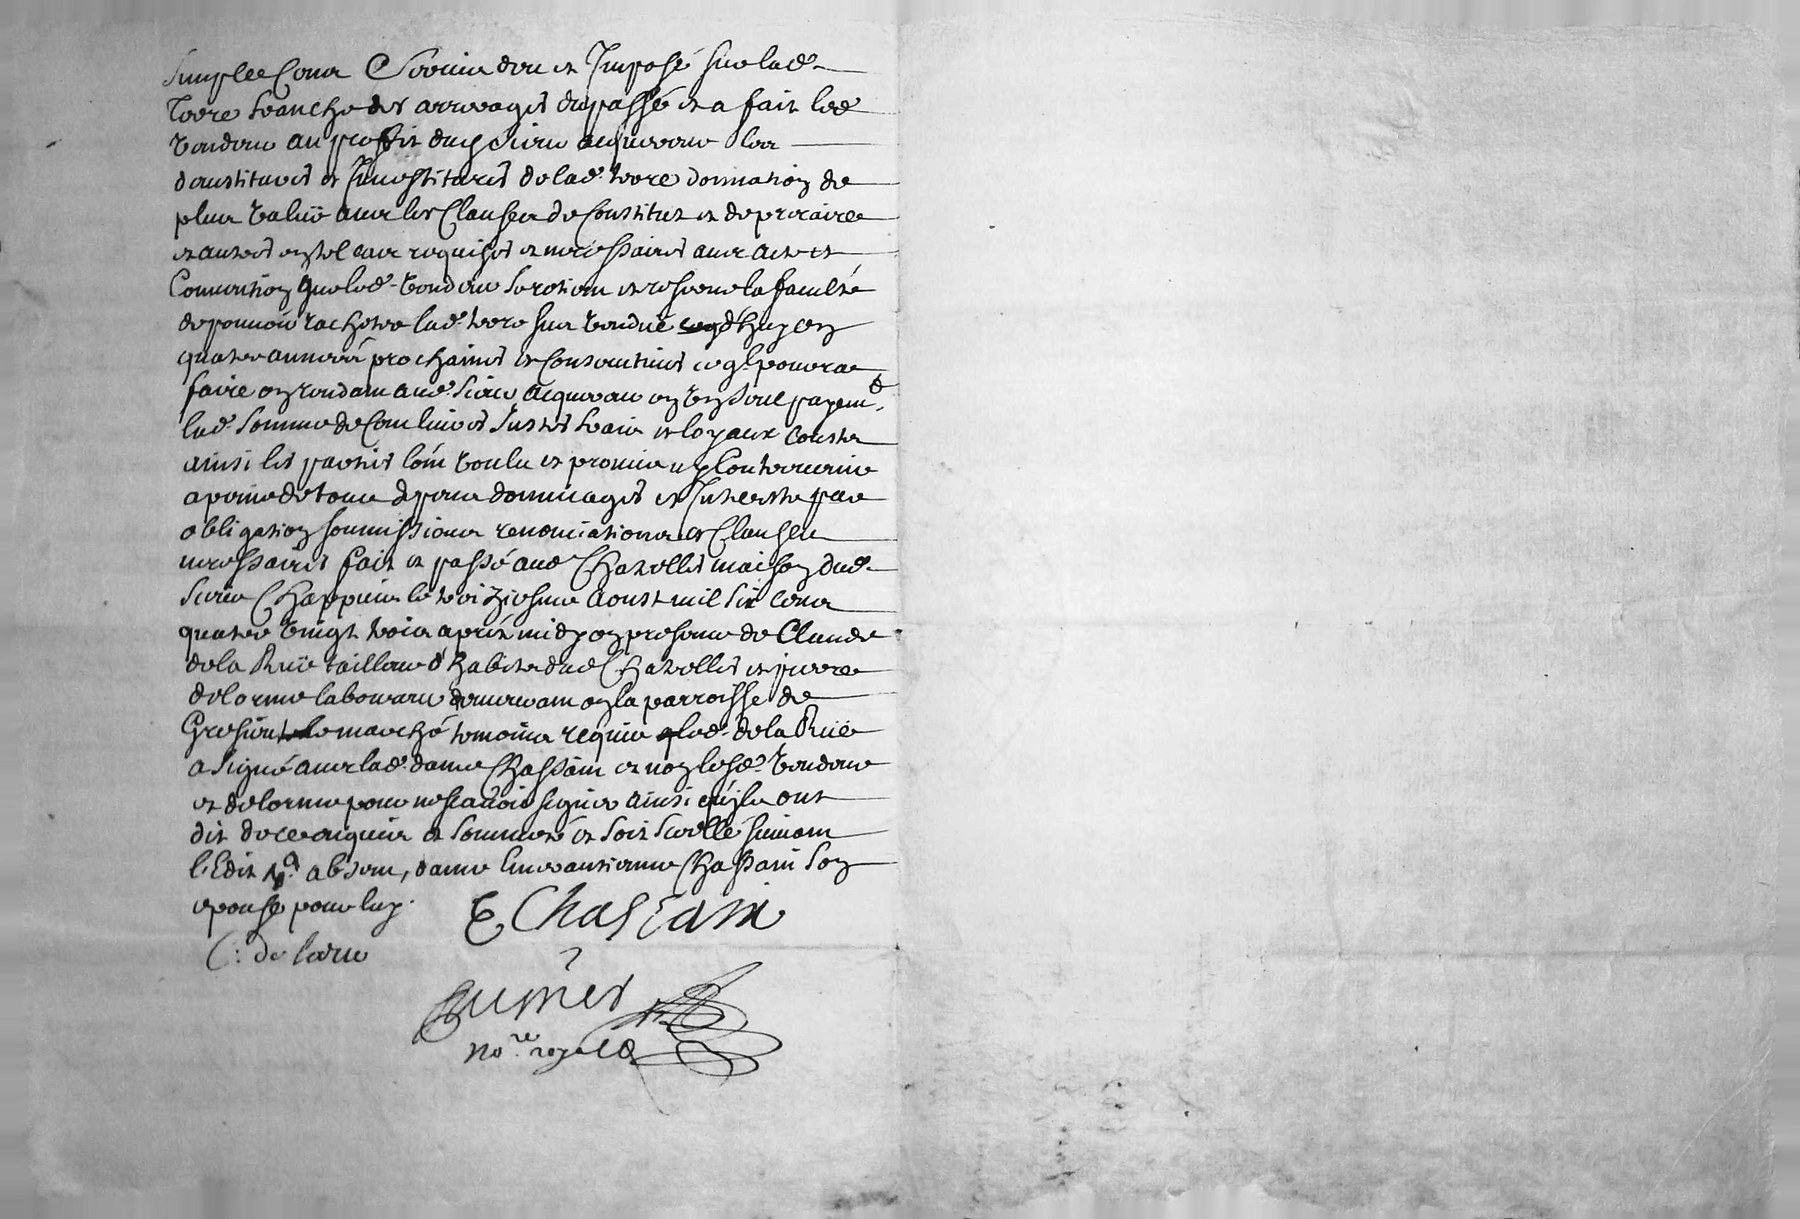 simple Cens et Servis deu et Imposé sur lad.
terre franche des arrerages du passé et a fait led
vendeur au profit dud Sieur acquereur les
devestitures et Investitures de lad. terre donnation de
plus valüe avec les Clauses de Constitut et de precaire
et autres en tel cas requises et necessaires avec acte et
Convention que led. vendeur se retient et reserve la faculté
de pouvoir rachepter lad. terre sus vendüe d'huy en
quatre années prochaines et Consecutives ce q'l pourra
faire en rendant aud. sieur acquereur en un seul payemt
lad. somme de Cent livres Justes frais et loyaux Cousts
ainsi les parties l'ont voulu et promis n'y Contrevenir
a peine de tous depens dommages et Interests par
obligation soumissions renonciations et Clauses
necessaires fait et passé aud Chazelles maison dud.
sieur Chappuis le treiziesme Aoust mil six cens
quatre vingt trois aprés midy en presence de Claude
de la Ruë tailleur d'habits dud Chazelles et pierre
delorme laboureur demeurant en la parroisse de
Gresieu le marché temoins requis led. de la Rüe
a signé avec lad. dame Chastain et non lesd. vendeur
et delorme pour ne scavoir signer ainsi qu'ils ont
dit de ce enquis et sommés et soit scellé suivant
l'Edit absent, dame Chastain son
epouse pour luy.
E Chastain
C: de larue
no.re royal